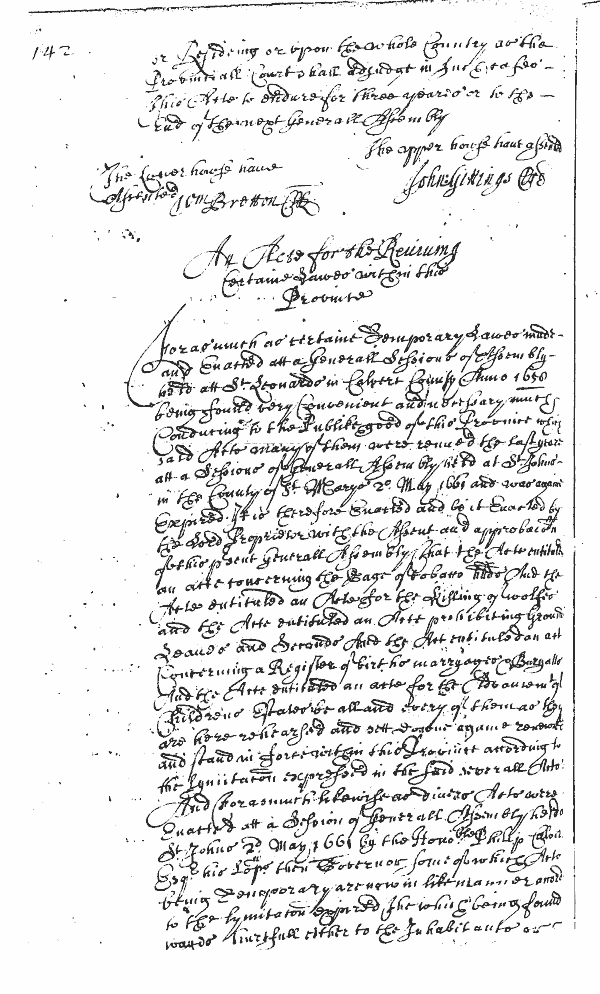 142
or Resideing or upon the whole Country as the
Provinciall Court shall adjudge in such cases
This Acte to endure for three yeares or to the
End of the next Generall Assembly
The upper house have assented
The Lower house have
Assented Wm Bretton Clk
John Gittings Clk
An Acte for the Reviving
Certaine Lawes within this
Province
Forasmuch as certaine Temporary Lawes made
and Enacted att a Generall Sessions of Assembly
held att St Leonards in Calvert County Anno 1658
being found very Convenient and necessary much
Conducing to the Publike good of this Province which
said Acts many of them were revived the last yeare
att a Sessions of Generall Assembly held at St Johns
in the County of St Maryes 2o May 1661 and was againe
Expired It is therefore Enacted and be it Enacted by
the Lord Proprietor with the Assent and approbacon
of this psent Generall Assembly that the Acte entituled
an acte concerning the Gage of Tobacco hhds And the
Acte entituled an Acte for the Killing of wolfes
and the Acte entituled an Acte prohibiting Ground
Leaves and Seconds And the Act entituled an act
Concerning a Register of births marryages & Buryalls
And the Acte entituled an acte for the Advancemt of
Childrens Estates be all and every of them as they
are here rehearsed and sett downe againe renewed
and stand in force within this Province according to
the Lymitacon expressed in the said severall Acts
And Forasmuch likewise as divers Acts were
Enacted att a Session of Generall Assembly held att
St Johns 2d May 1661 by the Honoble Phillip Calvert
Esqr his Lops then Governor some of which Acts
being Temporary are now in like manner accord
to the lymitacon expired the which being found
wayes hurtfull either to the Inhabitants or